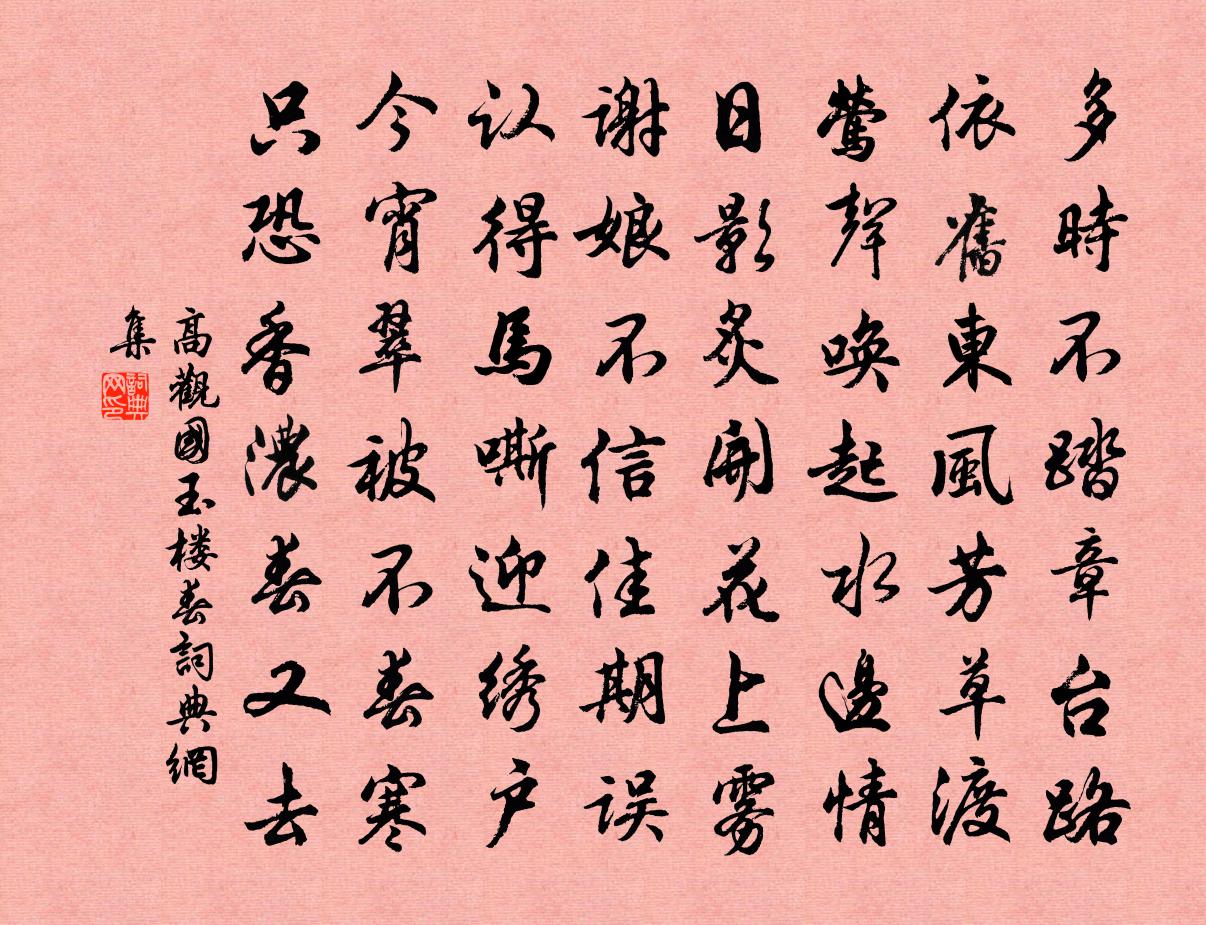 多時不踏章台路
依舊東風芳草渡
鶯聲喚起水邊情
日影炙開花上雾
谢娘不信佳期误
认得馬嘶迎绣户
今宵翠被不春寒
只恐香濃春又去
高觀國玉楼春詞典網
集
詞典
网印